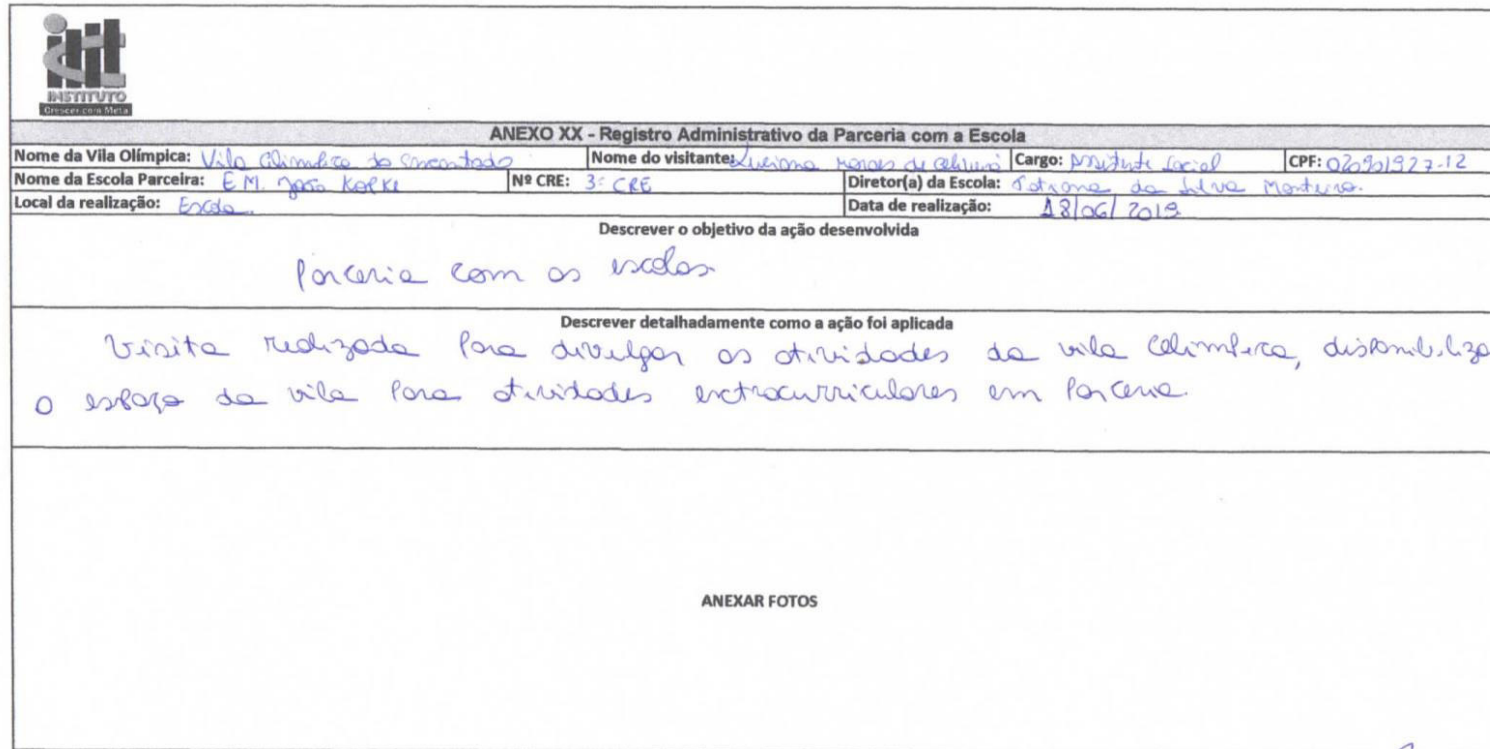 INSTITUTO
Crescer com Meta
ANEXO XX - Registro Administrativo da Parceria com a Escola
Nome da Vila Olímpica: Vila Olímpica do Encantado Nome do visitante: Luciana Moraes de Cargo: Assistente Social CPF: 020901927-12
Nome da Escola Parceira: E.M. João Kopke Nº CRE: 3ª CRE Diretor(a) da Escola: Tatiana da Silva Monteiro.
Local da realização: Escola. Data de realização: 18/06/2019
Descrever o objetivo da ação desenvolvida
Parceria com as escolas
Descrever detalhadamente como a ação foi aplicada
Visita realizada para divulgar as atividades da vila Olímpica, disponibiliza
o espaço da vila para atividades extracurriculares em parceria.
ANEXAR FOTOS